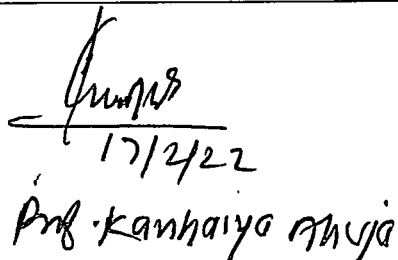 17/2/22
Prof. Kanhaiya Ahuja